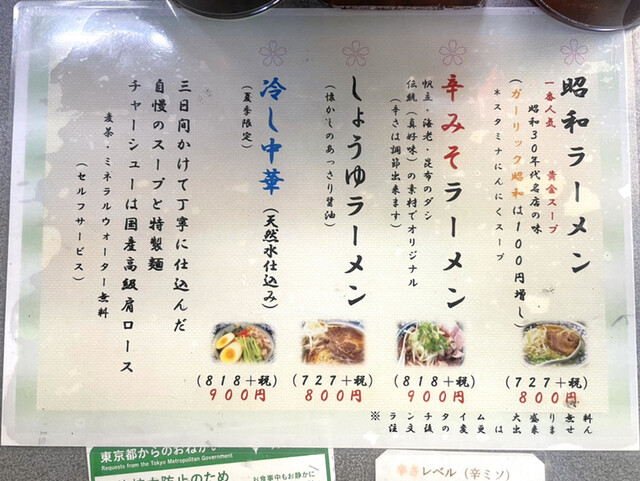 昭和ラーメン
一番人気 黄金スープ
昭和30年代名店の味
(ガーリック昭和は100円増し)
*スタミナにんにくスープ
(727+税)
800円
辛みそラーメン
帆立・海老・昆布のダシ
伝統(真好味)の素材でオリジナル
(辛さは調節出来ます)
(818+税)
900円
しょうゆラーメン
(懐かしのあっさり醤油)
(727+税)
800円
冷し中華(天然水仕込み)
(夏季限定)
(818+税)
900円
三日間かけて丁寧に仕込んだ
自慢のスープと特製麺
チャーシューは国産高級肩ロース
麦茶・ミネラルウォーター無料
(セルフサービス)
※ランチタイム 大盛り無料
注文後の変更は出来ません
東京都からのおねがい
Requests from the Tokyo Metropolitan Government
防止のため
お食事中もお静かに
辛さレベル(辛ミソ)